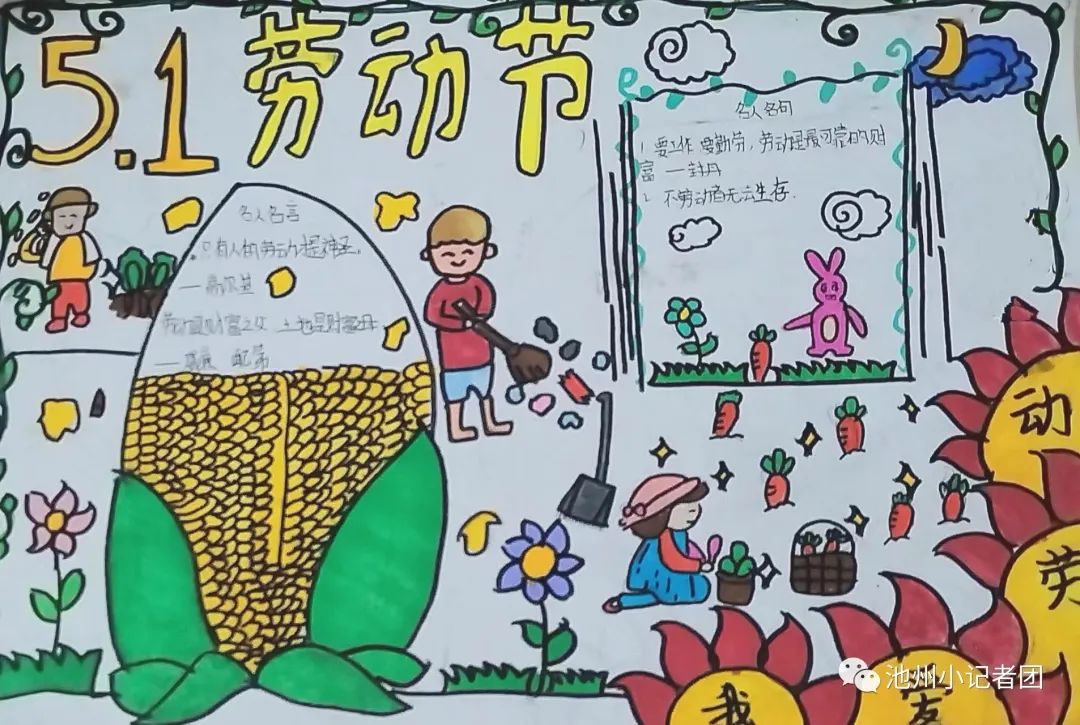 5.1 劳动节
名人名句
1 要工作 要勤劳，劳动是最可靠的财
富 —封丹
2 不劳动者无云生存.
名人名言
只有人的劳动才是神圣。
—高尔基
劳动是财富之父 土地是财富母
— 配第
动
劳
我
池州小记者团